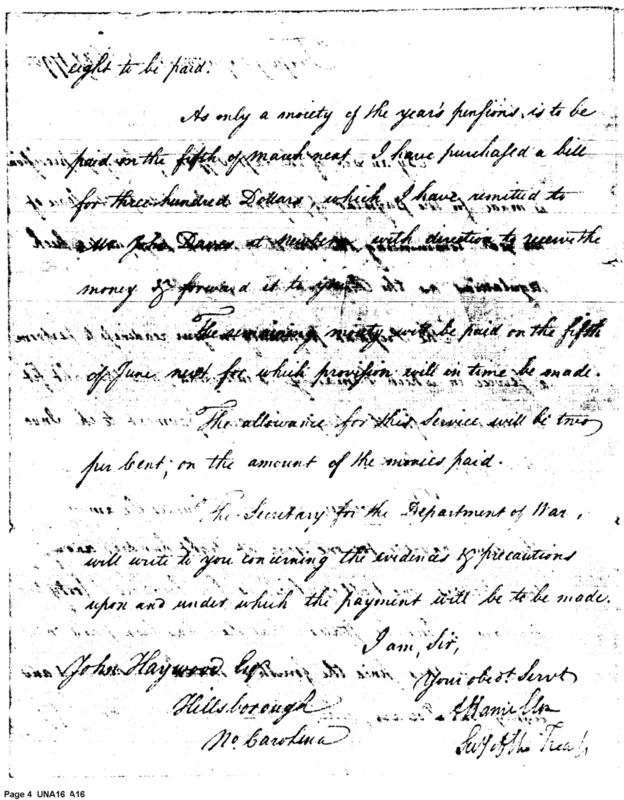 ought to be paid.
As only a moiety of the year's pensions, is to be
paid on the fifth of March next I have purchased a bill
for three hundred Dollars, which I have remitted to
Mr John Daves at Newbern with direction to receive the
money & forward it to you.
The remaining moiety will be paid on the fifth
of June next for which provision will in time be made.
The allowance for this Service will be two
per Cent, on the amount of the monies paid.
The Secretary for the Department of War,
will write to you concerning the evidences & precautions
upon and under which the payment will be to be made.
I am, Sir,
Your obedt Servt
A Hamilton
Secy of the Treasy
John Haywood Esqr
Hillsborough
No. Carolina
Page 4 UNA16 A16